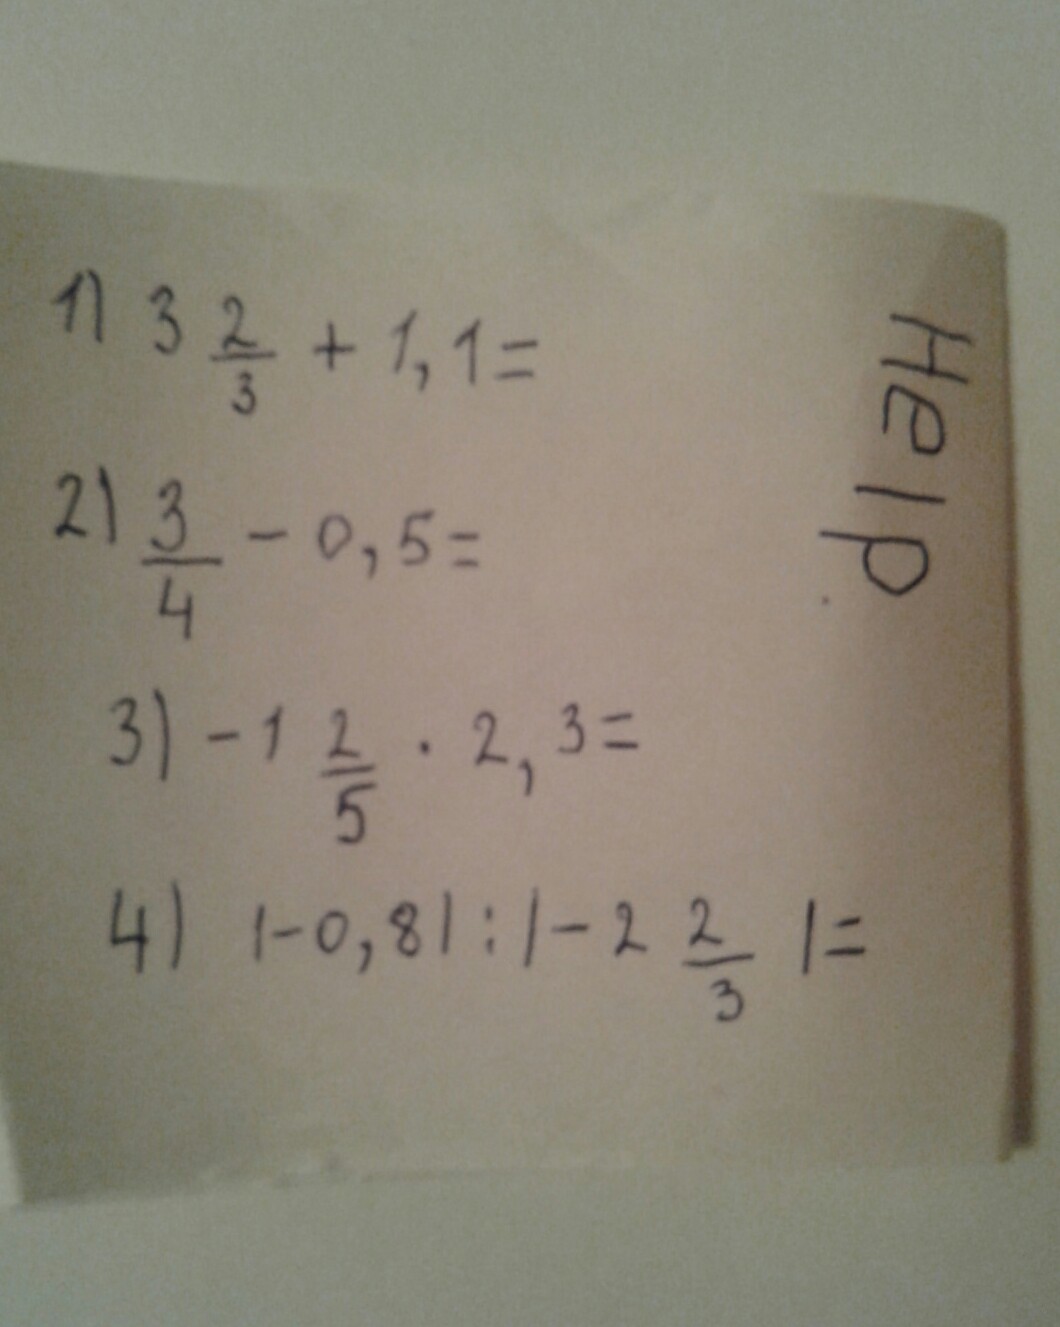 1) 3 2/3 + 1,1=
2) 3/4 - 0,5=
3) -1 2/5 · 2,3=
4) |-0,8|:|-2 2/3|=
Help